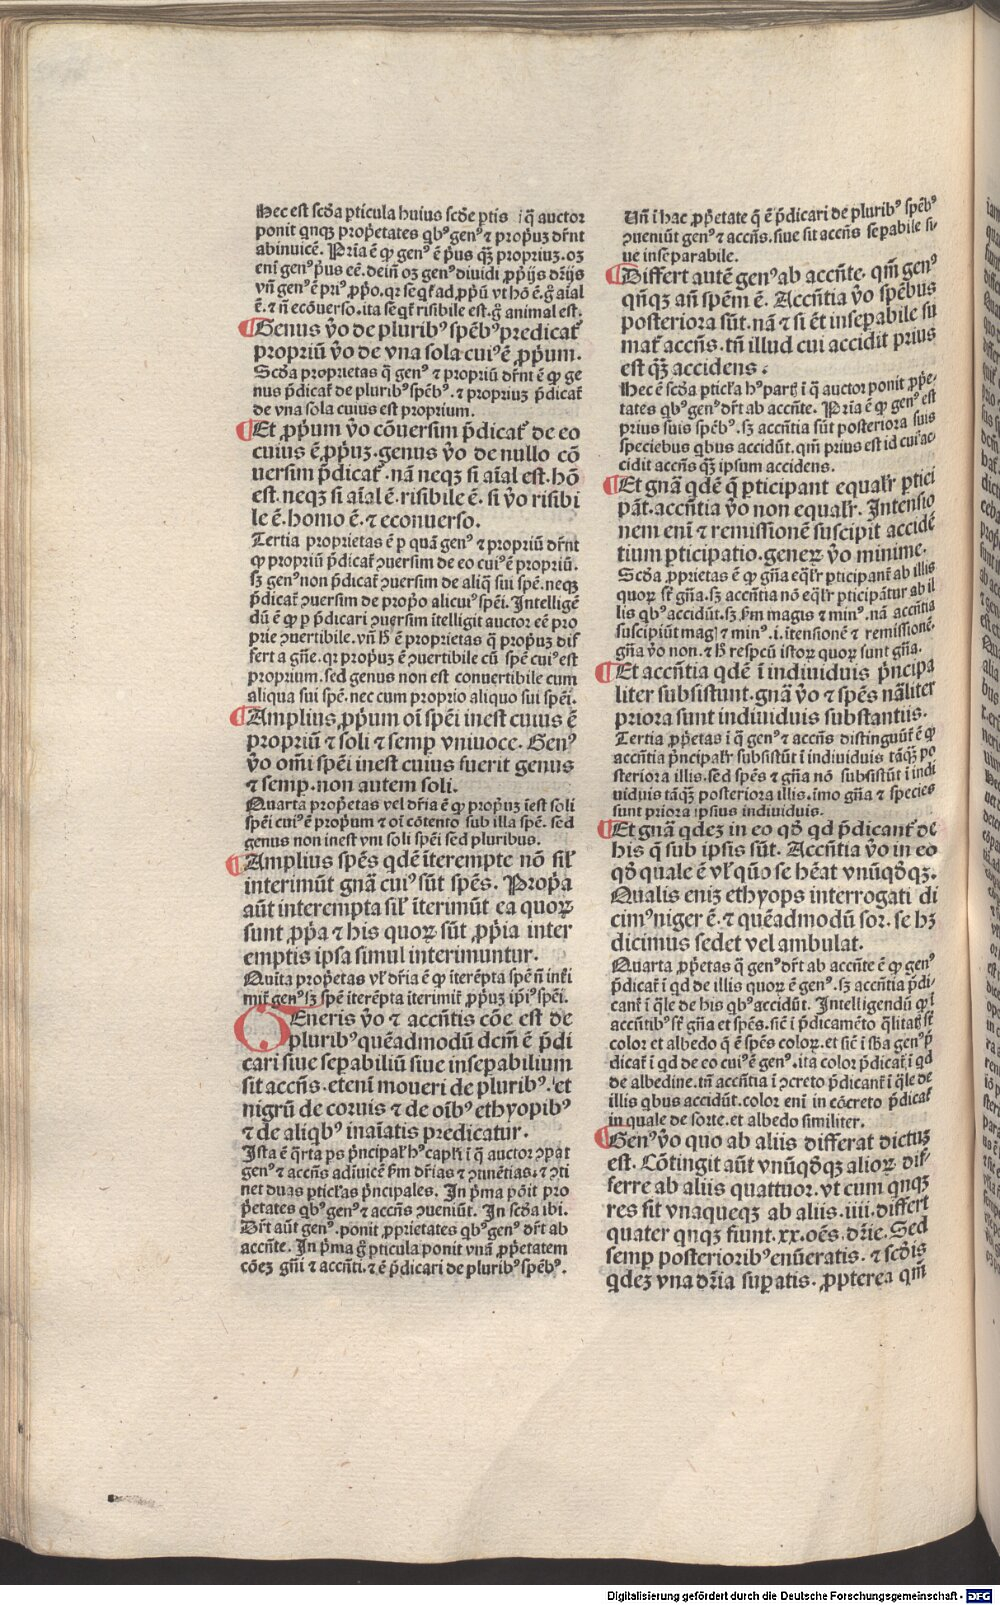 Hec est scða pticula huius scðe ptis i q̃ auctor
ponit qnqꝫ prop̃etates qbꝰ genꝰ ⁊ prop̃uꝫ dr̃nt
abinuicẽ. Pria ẽ ꝙ genꝰ ẽ p̃us qꝫ̃ propriuꝫ. oꝫ
eni genꝰ p̃us eẽ. dein̄ oꝫ genꝰ diuidi ꝓp̃ijs dr̃ijs
vn̄ genꝰ ẽ priꝰ ꝓp̃o. qr seqt̃ ad ꝓp̃ũ vt hõ ẽ. g̃ aĩal
ẽ. ⁊ n̄ ecõuerso. ita seqt̃ risibile est. g̃ animal est.
¶ Genus ṽo de pluribꝰ spẽbꝰ predicat̃
propriũ ṽo de vna sola cuiꝰ ẽ ꝓp̃um.
Scða proprietas q̃ genꝰ ⁊ propriũ dr̃nt ẽ ꝙ ge
nus p̃dicat̃ de pluribꝰ spẽbꝰ. ⁊ propriuꝫ p̃dicat̃
de vna sola cuius est proprium.
¶ Et ꝓp̃um ṽo cõuersim p̃dicat̃ de eo
cuius ẽ ꝓp̃uꝫ. genus ṽo de nullo cõ
uersim p̃dicat̃. nã neqꝫ si aĩal est. hõ
est. neqꝫ si aĩal ẽ. risibile ẽ. si ṽo risibi
le ẽ. homo ẽ. ⁊ econuerso.
Tertia proprietas ẽ p quã genꝰ ⁊ propriũ dr̃nt
ꝙ propriũ p̃dicat̃ ꝯuersim de eo cuiꝰ ẽ propriũ.
sꝫ genꝰ non p̃dicat̃ ꝯuersim de aliq̃ sui spẽ. neqꝫ
p̃dicat̃ ꝯuersim de prop̃o alicuiꝰ spẽi. Intelligẽ
dũ ẽ ꝙ p p̃dicari ꝯuersim ĩtelligit auctor eẽ pro
prie ꝯuertibile. vn̄ ħ ẽ proprietas q̃ prop̃uꝫ dif
fert a gñe. qr prop̃uꝫ ẽ ꝯuertibile cũ spẽ cuiꝰ est
proprium. sed genus non est conuertibile cum
aliqua sui spẽ. nec cum proprio aliquo sui spẽi.
¶ Amplius ꝓp̃um oĩ spẽi inest cuius ẽ
propriũ ⁊ soli ⁊ semꝑ vniuoce. Genꝰ
ṽo om̃i spẽi inest cuius fuerit genus
⁊ semꝑ. non autem soli.
Quarta prop̃etas vel dr̃ia ẽ ꝙ prop̃uꝫ ĩest soli
spẽi cuiꝰ ẽ prop̃um ⁊ oĩ cõtento sub illa spẽ. sed
genus non inest vni soli spẽi sed pluribus.
¶ Amplius spẽs qdẽ ĩterempte nõ sil̃
interimũt gnã cuiꝰ sũt spẽs. Prop̃a
aũt interempta sil̃ ĩterimũt ea quoꝝ
sunt ꝓp̃a ⁊ his quoꝝ sũt ꝓp̃ia inter
emptis ipsa simul interimuntur.
Quĩta prop̃etas vl̃ dr̃ia ẽ ꝙ iterẽpta spẽ n̄ inti
mit̃ genꝰ sꝫ spẽ iterẽpta iterimit̃ ꝓp̃uꝫ ip̃iꝰ spẽi.
GEneris ṽo ⁊ accñtis cõe est de
pluribꝰ quẽadmodũ dcm̃ ẽ p̃di
cari siue sepabiliũ siue insepabilium
sit accñs. eteni moueri de pluribꝰ. et
nigrũ de coruis ⁊ de oĩbꝰ ethyopibꝰ
⁊ de aliqbꝰ inaĩatis predicatur.
Ista ẽ q̃rta ps p̃ncipal̃ hꝰ capl̃i i q̃ auctor ꝯpat
genꝰ ⁊ accñs adĩuicẽ ẜm dr̃ias ⁊ ꝯuñẽtias. ⁊ ꝯti
net duas pticl̃as p̃ncipales. In p̃ma põit pro
p̃etates qbꝰ genꝰ ⁊ accñs ꝯueniũt. In scða ibi.
Dr̃t aũt genꝰ. ponit ꝓprietates qbꝰ genꝰ dr̃t ab
accñte. In p̃ma g̃ pticula ponit vnã ꝓp̃etatem
cõeꝫ gñi ⁊ accñti. ⁊ ẽ p̃dicari de pluribꝰ spẽbꝰ.
Vn̄ i hac ꝓp̃etate q̃ ẽ p̃dicari de pluribꝰ spẽbꝰ
ꝯueniũt genꝰ ⁊ accñs. siue sit accñs sepabile si-
ue inseparabile.
¶ Differt autẽ genꝰ ab accñte. qm̃ genꝰ
qñqꝫ añ spẽm ẽ. Accñtia ṽo spẽbus
posteriora sũt. nã ⁊ si ẽt insepabile su
mat̃ accñs. tñ illud cui accidit prius
est qꝫ̃ accidens.
Hec ẽ scða pticl̃a hꝰ partꝭ i q̃ auctor ponit ꝓp̃e-
tates qbꝰ genꝰ dr̃t ab accñte. Pria ẽ ꝙ genꝰ est
prius suis spẽbꝰ. sꝫ accñtia sũt posteriora suis
speciebus qbus accidũt. qm̃ prius est id cui ac
cidit accñs qꝫ̃ ipsum accidens.
¶ Et gnã qdẽ q̃ ꝑticipant equal̃r ꝑtici
pãt. accñtia ṽo non equal̃r. Intensio
nem eni ⁊ remissionẽ suscipit accidẽ
tium ꝑticipatio. geneꝝ ṽo minime.
Scða ꝓprietas ẽ ꝙ gñа eq̃l̃r ꝑticipant̃ ab illis
quoꝝ st̃ gña. sꝫ accñtia nõ eq̃l̃r ꝑticipãtur ab il
lis qbꝰ accidũt. sꝫ ẜm magis ⁊ minꝰ. nã accñtia
suscipiũt magꝭ ⁊ minꝰ. i. itensionẽ ⁊ remissionẽ.
gña ṽo non. ⁊ ħ respcũ istoꝝ quoꝝ sunt gña.
¶ Et accñtia qdẽ i indiuiduis p̃ncipa
liter subsistunt. gnã ṽo ⁊ spẽs nãliter
priora sunt indiuiduis substantiis.
Tertia ꝓp̃etas i q̃ genꝰ ⁊ accñs distinguũt̃ ẽ ꝙ
accñtia p̃ncipal̃r subsistũt i indiuiduis tãqꝫ̃ po
steriora illis. sed spẽs ⁊ gña nõ subsistũt i indi
uiduis tãqꝫ̃ posteriora illis. imo gña ⁊ species
sunt priora ipsius indiuiduis.
¶ Et gnã qdeꝫ in eo qð qd p̃dicant̃ de
his q̃ sub ipsis sũt. Accñtia ṽo in eo
qð quale ẽ vl̃ quõ se hẽat vnũqðqꝫ.
Qualis eniꝫ ethyops interrogati di
cimꝰ niger ẽ. ⁊ quẽadmodũ sor. se hꝫ
dicimus sedet vel ambulat.
Quarta ꝓp̃etas q̃ genꝰ dr̃t ab accñte ẽ ꝙ genꝰ
p̃dicat̃ i qd de illis quoꝝ ẽ genꝰ. sꝫ accñtia p̃di-
cant̃ i q̃le de his qbꝰ accidũt. Intelligendũ ꝙ i
accñtibꝰ st̃ gña et spẽs. sic̃ i p̃dicamẽto q̃litatꝭ st̃
color et albedo q̃ ẽ spẽs coloꝝ. et sic̃ i sba genꝰ p̃
dicat̃ i qd de eo cuiꝰ ẽ genꝰ. ita color p̃dicat̃ i qd
de albedine. tñ accñtia i ꝯcreto p̃dicant̃ i q̃le de
illis qbus accidũt. color eni in cõcreto p̃dicat̃
in quale de sorte. et albedo similiter.
¶ Genꝰ ṽo quo ab aliis differat dictuꝫ
est. Cõtingit aũt vnũqðqꝫ alioꝝ dif-
ferre ab aliis quattuor. vt cum qnqꝫ
res sit vnaqueqꝫ ab aliis .iiii. differt
quater qnqꝫ fiunt. xx. oẽs. dr̃ie. Sed
semꝑ posterioribꝰ enũeratis. ⁊ scðis
qdeꝫ vna dr̃ia suꝑatis. ꝓpterea qm̃
Digitalisierung gefördert durch die Deutsche Forschungsgemeinschaft - DFG